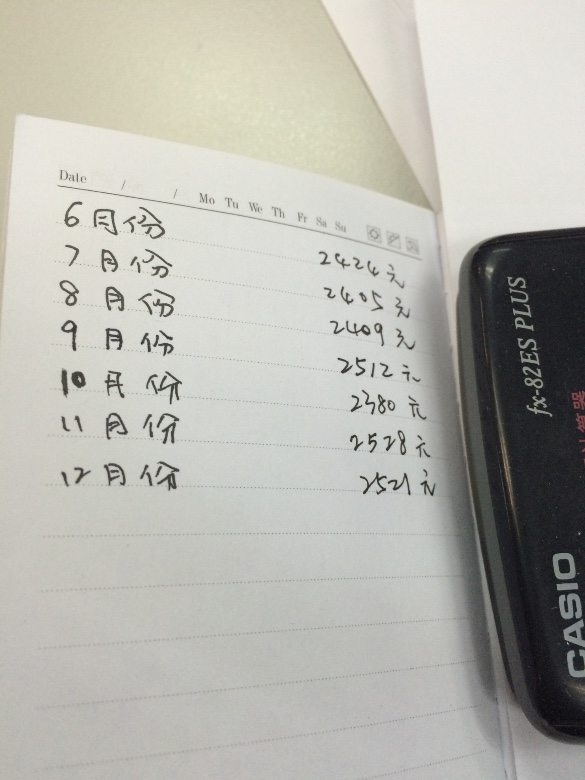 Date / / Mo Tu We Th Fr Sa Su
6月份 2424元
7月份 2405元
8月份 2409元
9月份 2512元
10月份 2380元
11月份 2528元
12月份 2521元
fx-82ES PLUS
算器
CASIO